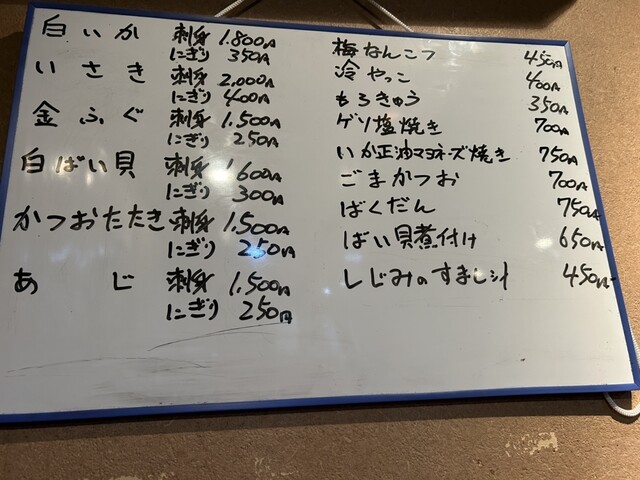 白いか 刺身 1.800円
にぎり 350円
いさき 刺身 2.000円
にぎり 400円
金ふぐ 刺身 1.500円
にぎり 250円
白ばい貝 刺身 1.600円
にぎり 300円
かつおたたき 刺身 1.500円
にぎり 250円
あじ 刺身 1.500円
にぎり 250円
梅なんこつ 450円
冷やっこ 400円
もろきゅう 350円
ゲソ塩焼き 700円
いか正油マヨネーズ焼き 750円
ごまかつお 700円
ばくだん 750円
ばい貝煮付け 650円
しじみのすまし汁 450円